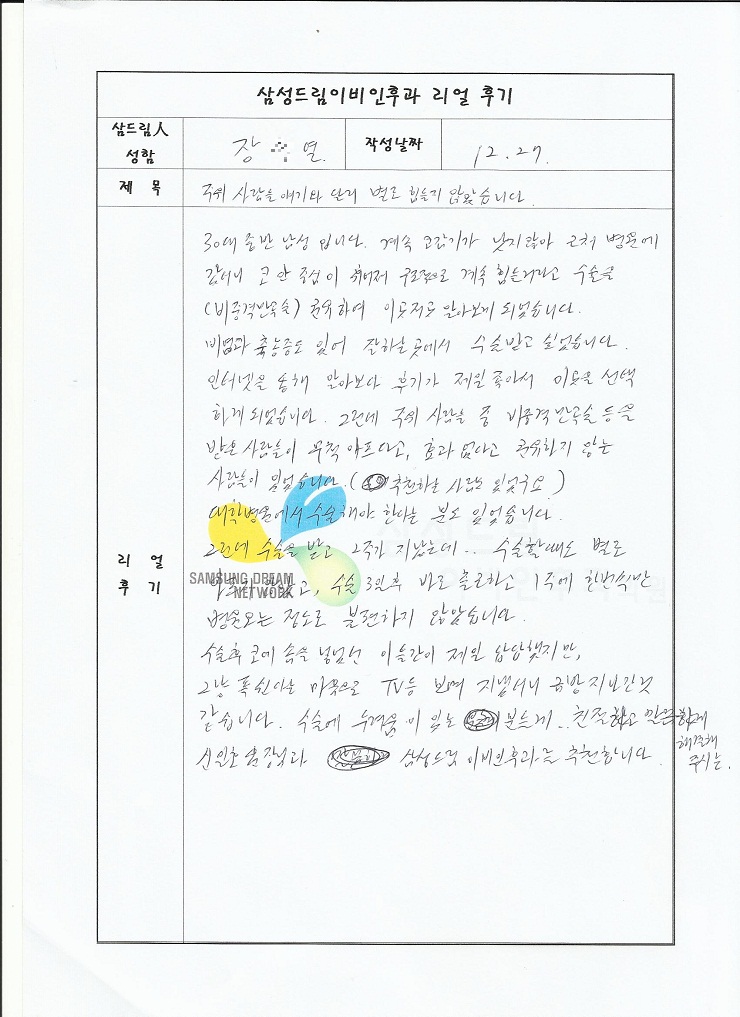 삼성드림이비인후과 리얼 후기
삼드림人 성함
장 열.
작성날짜
12.27.
제 목
주위 사람들 얘기와 달리 별로 힘들지 않았습니다.
리 얼 후 기
30대 중반 남성 입니다. 계속 코감기가 낫지않아 근처 병원에
갔더니 코 안 중심이 휘어져 구조적으로 계속 힘들거라고 수술을
(비중격만곡술) 권유하여 이곳저곳 알아보게 되었습니다.
비염과 축농증도 있어 잘하는 곳에서 수술받고 싶었습니다.
인터넷을 통해 알아보다 후기가 제일 좋아서 이곳을 선택
하게 되었습니다. 그런데 주위 사람들 중 비중격만곡술 등을
받은 사람들이 무척 아프다고, 효과 없다고 권유하지 않는
사람들이 있었습니다. ( 추천하는 사람도 있었구요 )
대학병원에서 수술해야 한다는 분도 있었습니다.
그런데 수술을 받고 2주가 지났는데.. 수술할때도 별로
, 수술 3일후 바로 출근하고 1주에 한번씩만
병원오는 정도로 불편하지 않았습니다.
수술후 코에 솜을 넣었던 이틀간이 제일 답답했지만,
그냥 푹 쉰다는 마음으로 TV등 보며 지냈더니 금방 지나간것
같습니다. 수술에 두려움이 있는 분들께.. 친절하고 깔끔하게
해결해
주시는.
신일호 원장님과 삼성드림 이비인후과를 추천합니다.
SAMSUNG DREAM
NETWORK